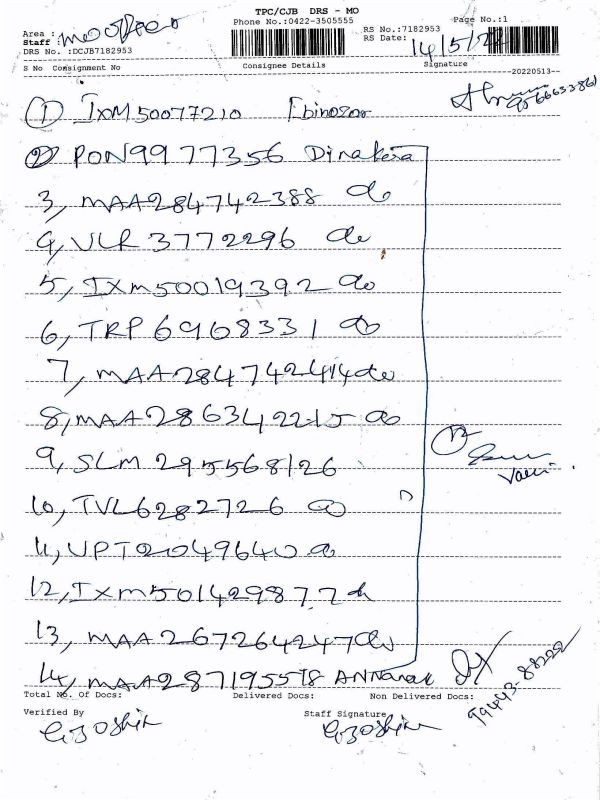 TPC/CJB DRS - MO
Phone No.:0422-3505555
Page No.:1
Area :
Staff :
DRS No. :DCJB7182953
RS No.:7182953
RS Date: 14/5/22
S No Consignment No Consignee Details Signature
20220513
1 IXM 50077210 Ebinozar
2 PON9977356 Dinakera
3, MAA284742388 do
4, VLR 3772296 do
5, IXM50019392 do
6, TRP 6968331 do
7, MAA284742414 do
8, MAA286342215 do
9, SLM 295568126
10, TVL6282726 do
11, VPT2049640 do
12, IXM501429877 do
13, MAA267264247 do
14, MAA287195518
99443-88222
Total No. of Docs: Delivered Docs: Non Delivered Docs:
Verified By Staff Signature